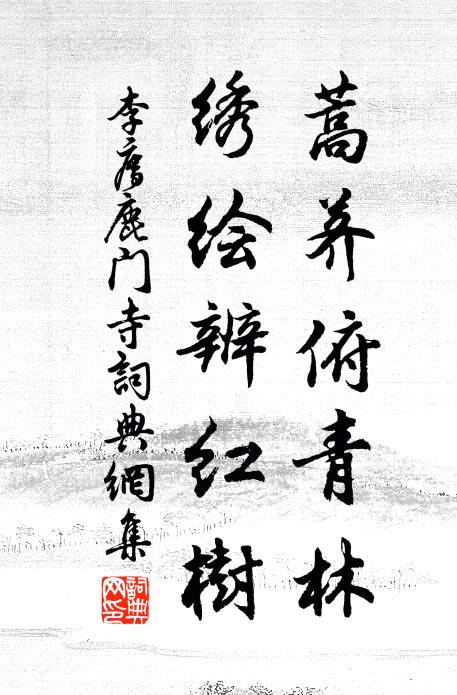 蒿莽俯青林
绣绘辨红樹
李廌鹿门寺詞典網集
詞典网印